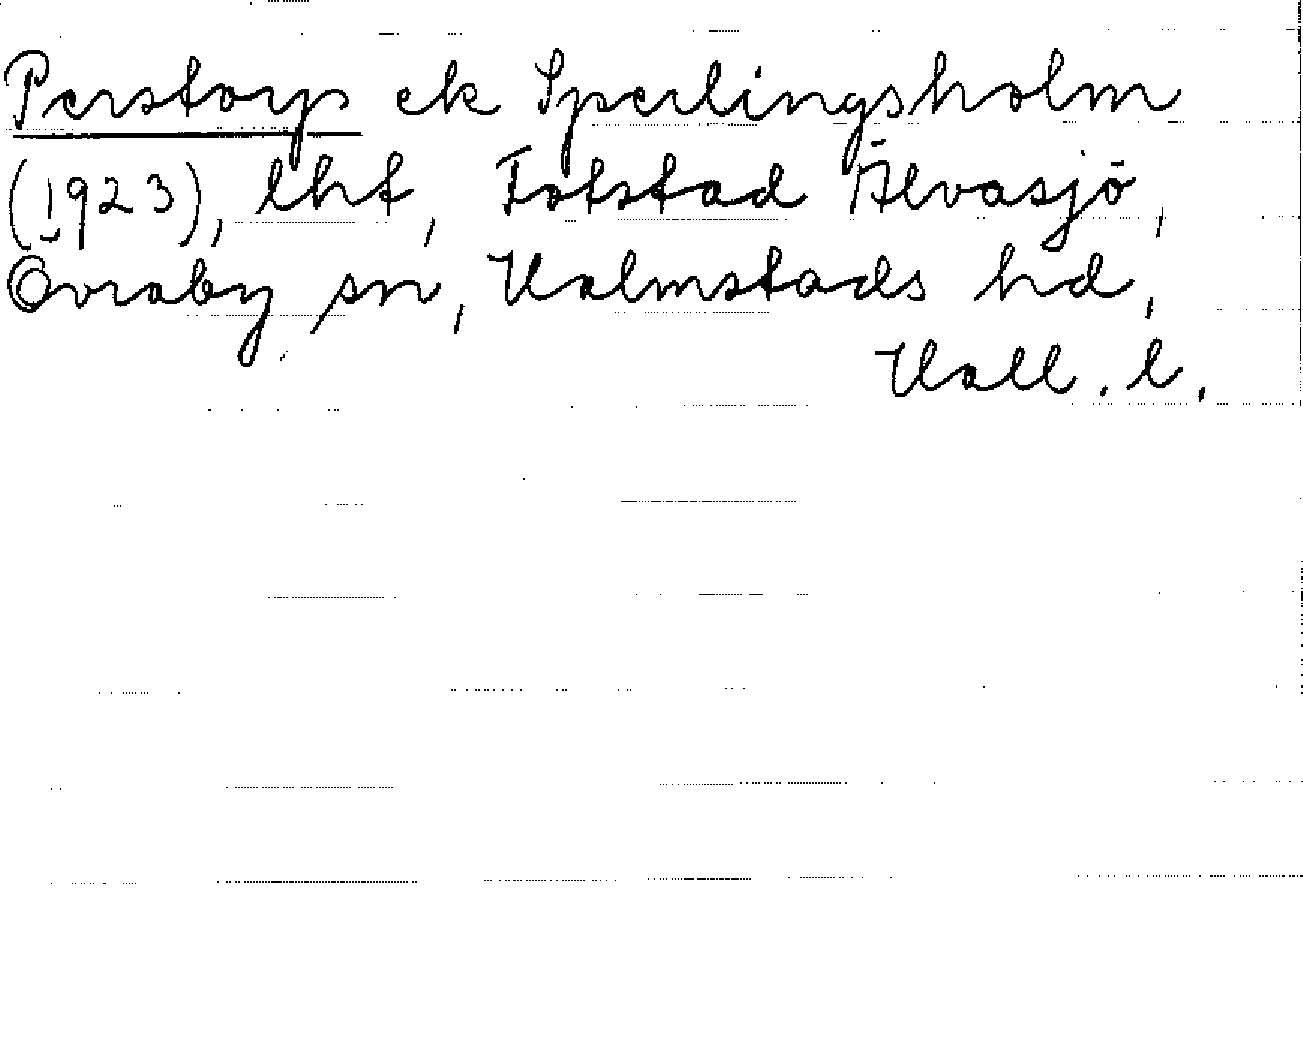 Perstorp ek Sperlingsholm
(1923), lht, Fotstad Älvasjö,
Övraby sn, Halmstads hd,
Hall. l.